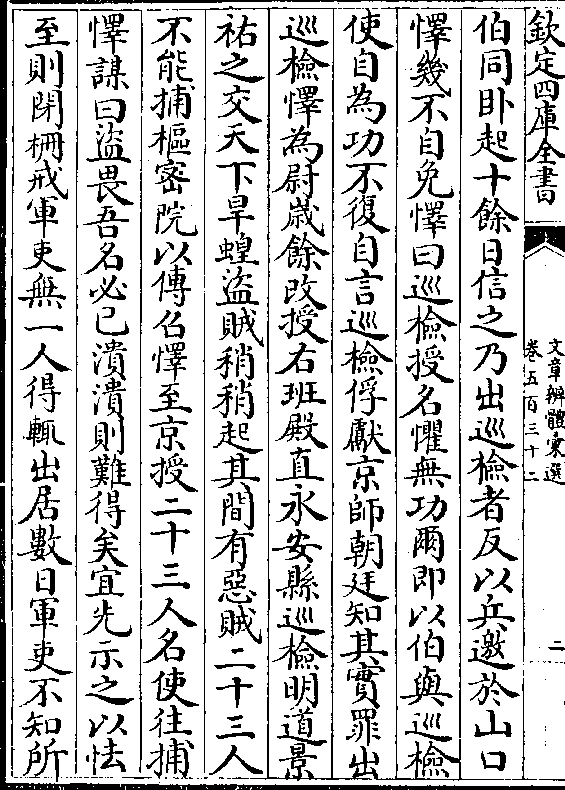 欽定四庫全書
文章辨體彙選
卷五百三十二
二
伯同卧起十餘日信之乃出巡檢者反以兵邀於山口
懌幾不自免懌曰巡檢授名懼無功爾即以伯與巡檢
使自為功不復自言巡檢俘獻京師朝廷知其實罪出
巡檢懌為尉嵗餘改授右班殿直永安縣巡檢明道景
祐之交天下旱蝗盜賊稍稍起其間有惡賊二十三人
不能捕樞密院以傳召懌至京授二十三人名使往捕
懌謀曰盜畏吾名必已潰潰則難得矣宜先示之以怯
至則閉柵戒軍吏無一人得輒出居數日軍吏不知所